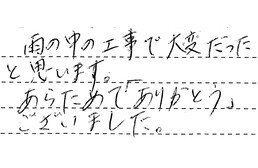 雨の中の工事で大変だった
と思います。
あらためて「ありがとう」
ございました。